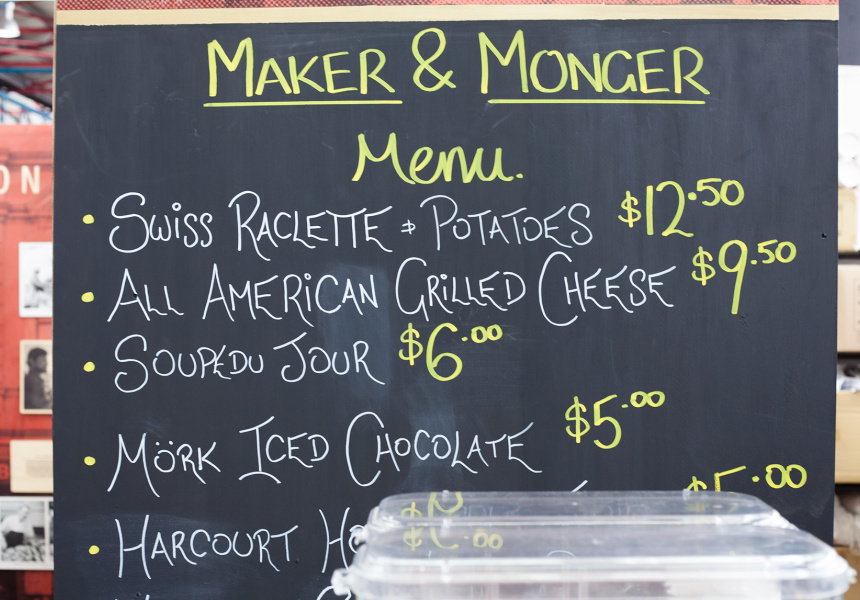 MAKER & MONGER
Menu.
• SWiSS RACLETTE & POTATOES $12.50
• ALL AMERiCAN GRiLLED CHEESE $9.50
• SOUP DU JOUR $6.00
• MöRK ICED CHOCOLATE $5.00
• HARCOURT
ON